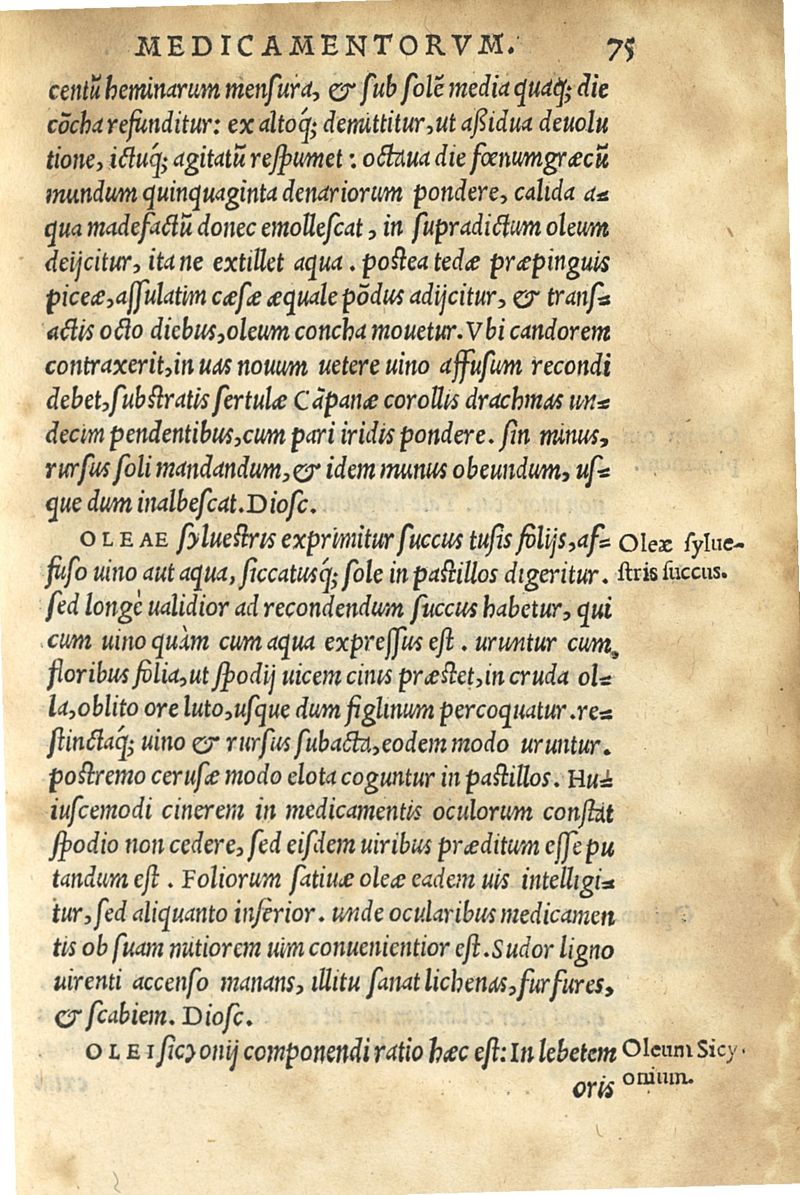 MEDICAMENTORVM. 75
centũ heminarum mensura, & sub solẽ media quaq; die
cõcha refunditur: ex altoq́; demittitur, ut aßidua deuolu
tione, ictuq́; agitatũ respumet: octaua die fœnumgræcũ
mundum quinquaginta denariorum pondere, calida a-
qua madefactũ donec emollescat, in supradictum oleum
deijcitur, ita ne extillet aqua. postea tedæ præpinguis
piceæ, assulatim cæsæ æquale põdus adijcitur, & trans-
actis octo diebus, oleum concha mouetur. Vbi candorem
contraxerit, in uas nouum uetere uino affusum recondi
debet, substratis sertulæ Cãpanæ corollis drachmas un-
decim pendentibus, cum pari iridis pondere. sin minus,
rursus soli mandandum, & idem munus obeundum, us-
que dum inalbescat. Diosc.
OLEAE syluestris exprimitur succus tusis folijs, af-
fuso uino aut aqua, siccatusq́; sole in pastillos digeritur.
sed longè ualidior ad recondendum succus habetur, qui
cum uino quàm cum aqua expressus est. uruntur cum
floribus folia, ut spodij uicem cinis præstet, in cruda ol-
la, oblito ore luto, usque dum figlinum percoquatur. re-
stinctaq́; uino & rursus subacta, eodem modo uruntur.
postremo cerusæ modo elota coguntur in pastillos. Hu-
iuscemodi cinerem in medicamentis oculorum constat
spodio non cedere, sed eisdem uiribus præditum esse pu
tandum est. Foliorum satiuæ oleæ eadem uis intelligi-
tur, sed aliquanto inferior. unde ocularibus medicamen
tis ob suam mitiorem uim conuenientior est. Sudor ligno
uirenti accenso manans, illitu sanat lichenas, furfures,
& scabiem. Diosc.
OLEI sicyonij componendi ratio hæc est: In lebetem
oris
Oleæ sylue-
stris succus.
Oleum Sicy-
onium.